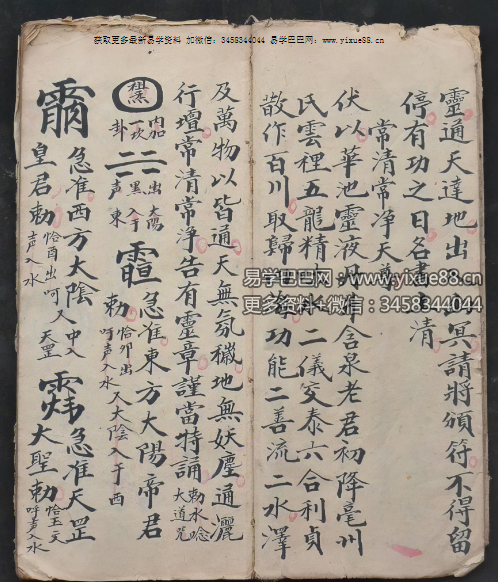 获取更多最新易学资料 加微信：3458344044 易学巴巴网：www.yixue88.cn
靈通天達地出冥請將頒符不得留
停有功之日名書上清
常清常净天尊
伏以華池靈液含泉老君初降亳州
氏雲裡五龍精二儀交泰六合利貞
散作百川取歸功能二善流二水澤
及萬物以皆通天無氛穢地無妖塵通灑
行壇常清常净告有靈章謹當特誦 勅水唸大道咒
内加一坎卦 出太陽黑入于声東 急准東方太陽帝君
勅 恰卯出呼声入水 又太陰入于西
急准西方太陰 又中入天罡
皇君勅 恰酉出呵声入水
急准天罡
大聖勅 呼声入水
易学巴巴网：www.yixue88.cn
更多资料：3458344044